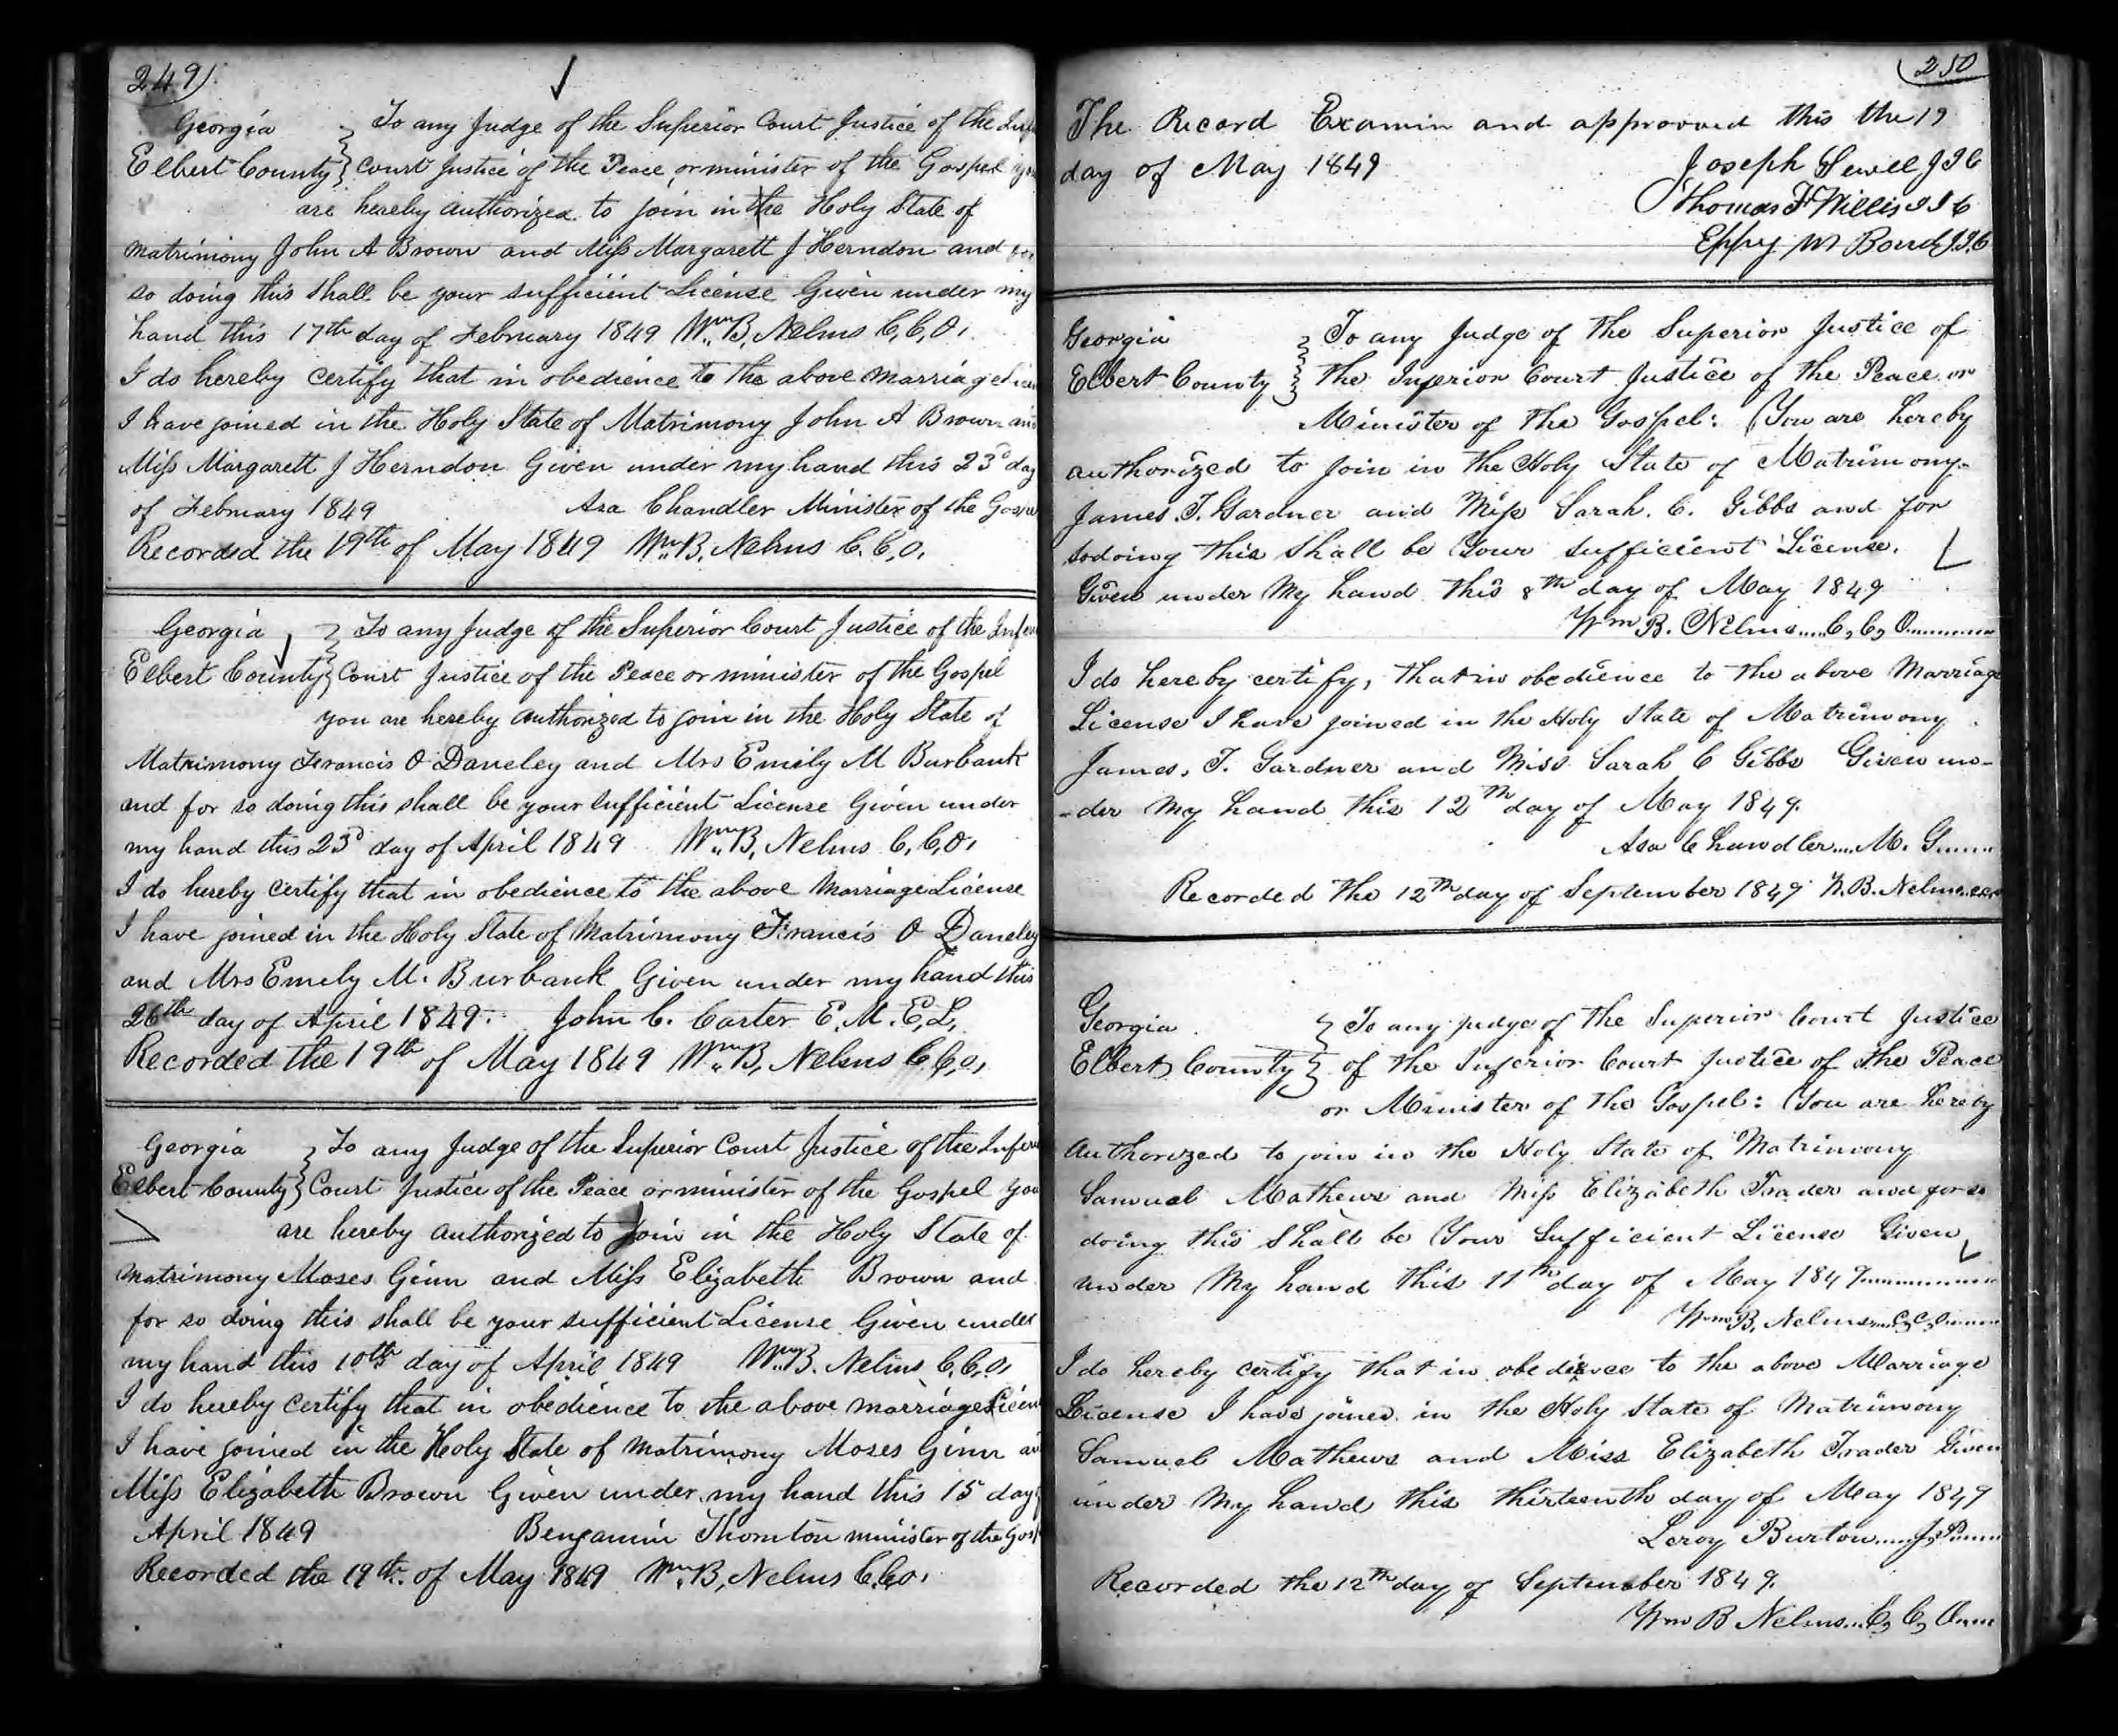 249
Georgia } To any Judge of the Superior Court Justice of the
Elbert County } Court Justice of the Peace, or minister of the Gospel
are hereby authorized to join in the Holy State of
matrimony John A Brown and Miss Margarett J Herndon and
so doing this shall be your sufficient License Given under my
hand this 17th day of February 1849 Wm B, Nelms C,C,O,
I do hereby certify that in obedience to the above marriage
I have joined in the Holy State of Matrimony John A Brown
Miss Margarett J Herndon Given under my hand this 23d day
of February 1849 Asa Chandler Minister of the
Recorded the 19th of May 1849 Wm B, Nelms C.C,O,
Georgia } To any Judge of the Superior Court Justice of the
Elbert County } Court Justice of the Peace or minister of the Gospel
you are hereby authorized to join in the Holy State of
Matrimony Francis O Daneley and Mrs Emily M Burbank
and for so doing this shall be your sufficient License Given under
my hand this 23d day of April 1849 Wm B, Nelms C,C,O,
I do hereby certify that in obedience to the above Marriage License
I have joined in the Holy State of Matrimony Francis O Daneley
and Mrs Emely M. Burbank Given under my hand this
26th day of April 1849. John C. Carter E. M. E, L,
Recorded the 19th of May 1849 Wm B, Nelms C,C,O,
Georgia } To any Judge of the Superior Court Justice of the
Elbert County } Court Justice of the Peace or minister of the Gospel you
are hereby authorized to Join in the Holy State of
matrimony Moses Ginn and Miss Elizabeth Brown and
for so doing this shall be your sufficient License Given under
my hand this 10th day of April 1849 Wm B. Nelms C.C,O,
I do hereby certify that in obedience to the above marriage
I have joined in the Holy State of matrimony Moses Ginn
Miss Elizabeth Brown Given under my hand this 15 day
April 1849 Bengamin Thornton minister of the
Recorded the 19th of May 1849 Wm B, Nelms C.C,O,
250
The Record Examin and approoved this the 19
day of May 1849 Joseph Sewell J I C
Thomas F Willis J I C
Eppy W Bond J.I.C
Georgia } To any Judge of the Superior Justice of
Elbert County } the Inferior Court Justice of the Peace or
Minister of the Gospel: You are hereby
authorized to join in the Holy State of Matrimony
James. T. Gardner and Miss Sarah. C. Gibbs and for
sodoing this shall be Your sufficient License.
Given under My hand this 8th day of May 1849
Wm B. Nelms.....C, C, O.........
I do hereby certify, that in obedience to the above Marriage
License I have joined in the Holy State of Matrimony
James, T. Gardner and Miss Sarah C Gibbs Given un-
-der My hand this 12th day of May 1849.
Asa Chandler....M. G.....
Recorded the 12th day of September 1849 W. B. Nelms. cco
Georgia } To any judge of the Superior Court Justice
Elbert County } of the Inferior Court Justice of the Peace
or Minister of the Gospel: You are hereby
Authorized to join in the Holy State of Matrimony
Samuel Mathews and Miss Elizabeth Trader and for so
doing this Shall be Your Sufficient License Given
under My hand this 11th day of May 1849...........
Wm B, Nelms....C, C, O.....
I do hereby certify that in obedience to the above Marriage
License I have joined in the Holy State of Matrimony
Samuel Mathews and Miss Elizabeth Trader Given
under My hand this thirteenth day of May 1849
Leroy Burton.....J, P....
Recorded the 12th day of September 1849.
Wm B Nelms...C, C, O....